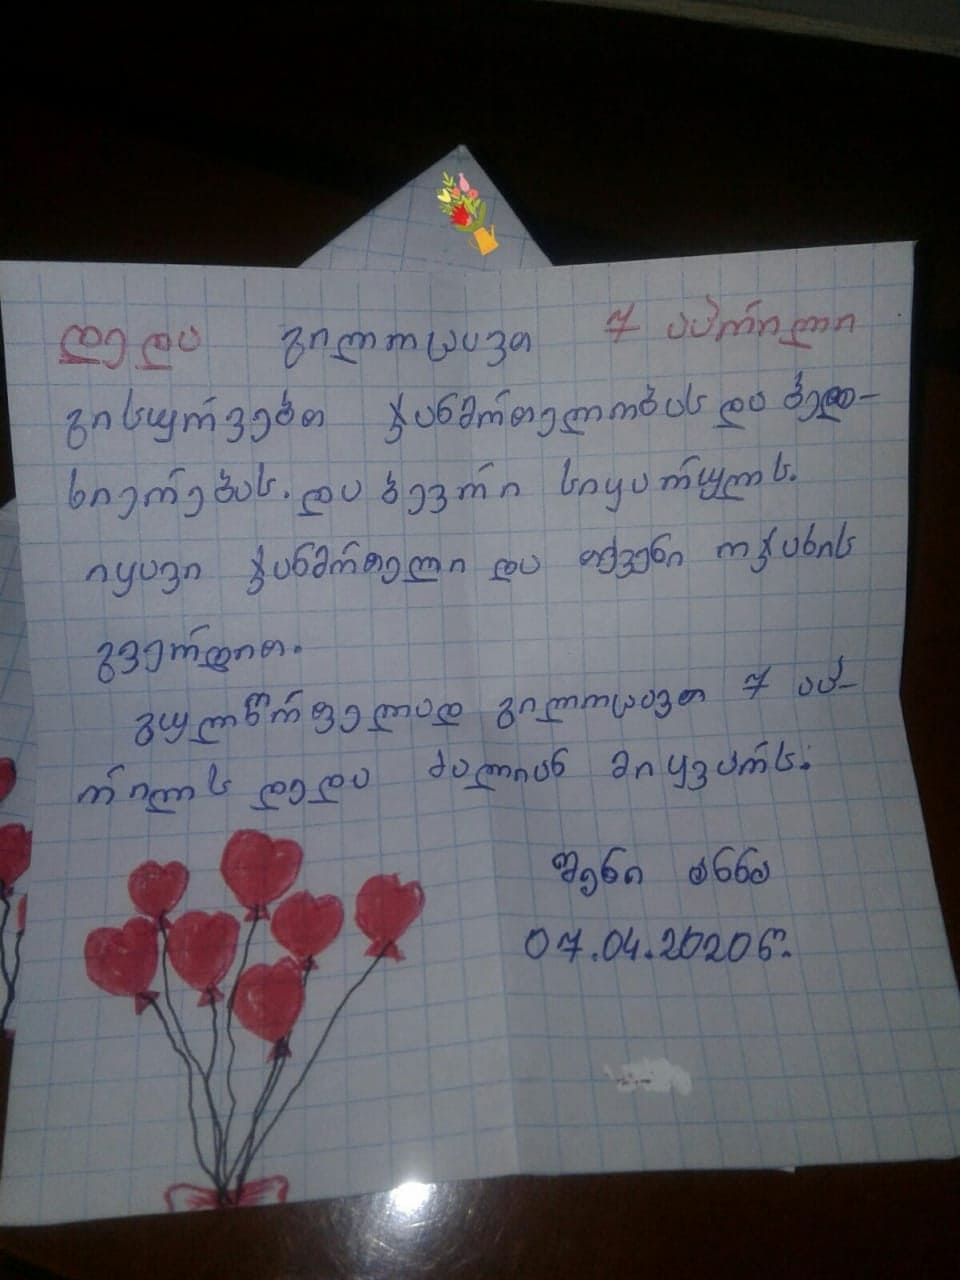 დედა გილოცავთ 7 აპრილი
გისურვებთ ჯანმრთელობას და ბედ-
ნიერებას. და ბევრი სიყარულს.
იყავი ჯანმრთელი და თქვენი ოჯახის
გვერდით.
გულწრფელად გილოცავთ 7 აპ-
რილს დედა ძალიან მიყვარს.
შენი ანნა
07.04.2020წ.